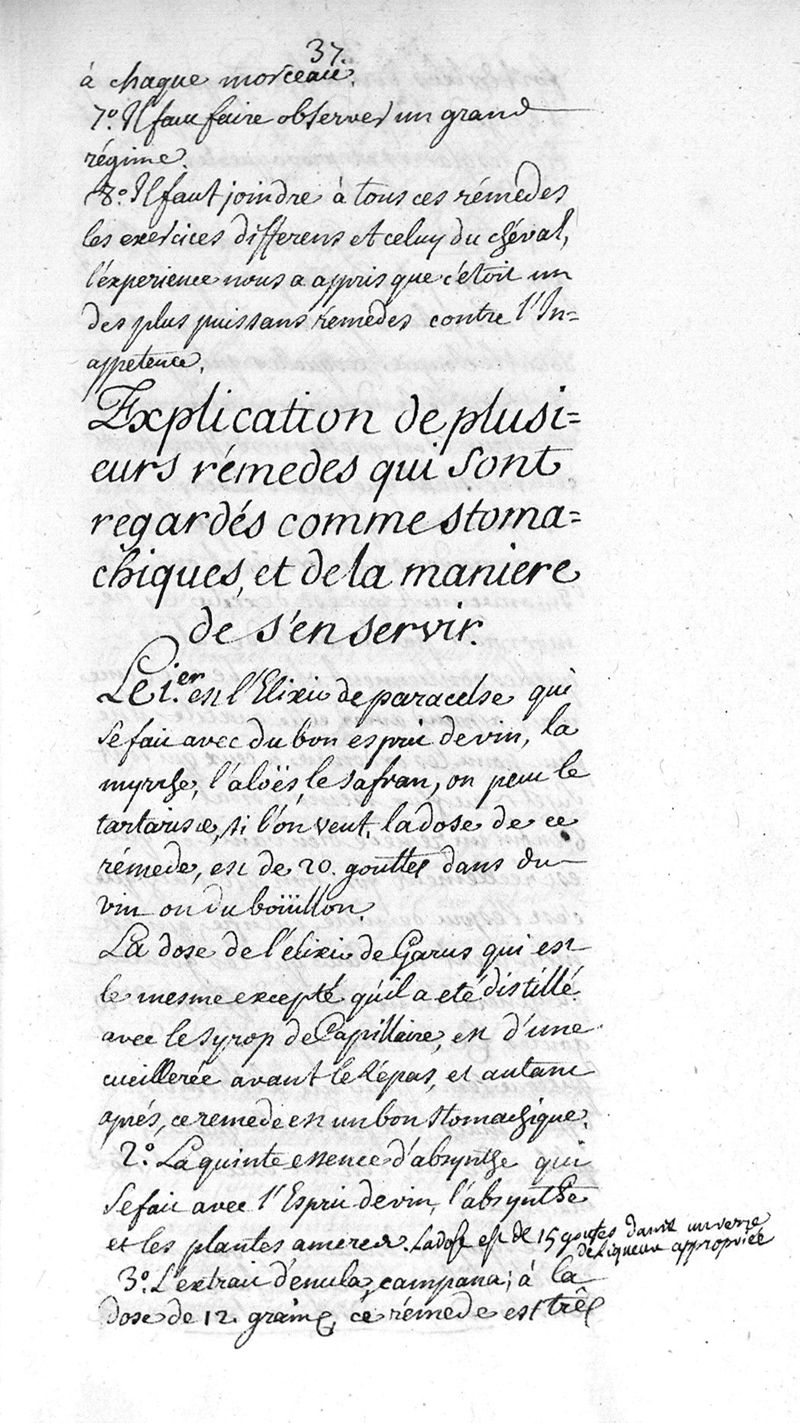 37.
à chaque morceau.
7.º Il faut faire observer un grand
régime.
8.º Il faut joindre à tous ces rémedes
les exercices differens et celuy du chéval,
l'éxperience nous a appris que c'étoit un
des plus puissans rémedes contre l'In=
appetence.
Explication de plusi=
eurs rémedes qui sont
regardés comme stoma=
chiques, et de la maniere
de s'en servir.
Le 1.er est l'Elixir de paracelse qui
se fait avec du bon esprit de vin, la
myrrhe, l'aloës, le safran, on peut le
tartariser, si l'on veut, la dose de ce
rémede, est de 20. gouttes dans du
vin ou du boüillon.
La dose de l'élixir de Garus qui est
le mesme excepté qu'il a eté distillé
avec le syrop de Capillaire, est d'une
cueillerée avant le Répas, et autant
aprés, ce remede est un bon stomachique.
2.º La quinte essence d'absynthe qui
se fait avec l'Esprit de vin, l'absynthe
et les plantes ameres. La dose est de 15 gouttes dans un verre
de liqueur appropriée
3.º L'extrait d'enula campana, à la
dose de 12 grains, ce rémede est très